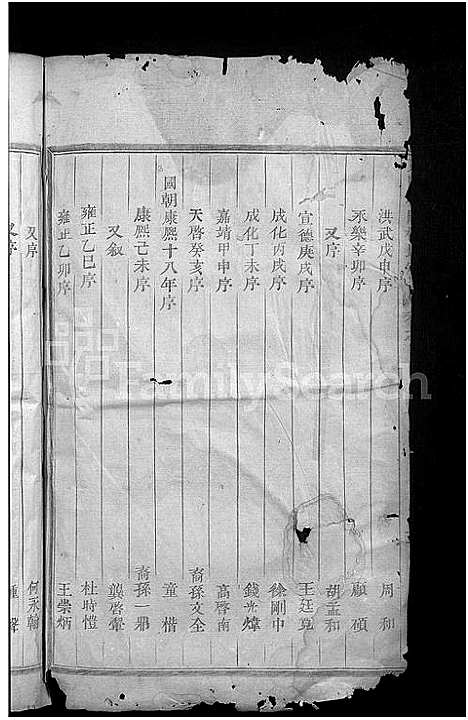 洪武戊申序 周和
永樂辛卯序 顧碩
又序 胡孟和
宣德庚戌序 王廷
成化丙戌序 徐剛中
成化丁未序 錢光煒
嘉靖甲申序 高啓南
天啓癸亥序 裔孫文全
國朝康熙十八年序 童楷
康熙己未序 裔孫一
又叙 龔啓
雍正乙巳序 杜時愷
雍正乙卯序 王崇炳
又序 何永
又序
FamilySearch